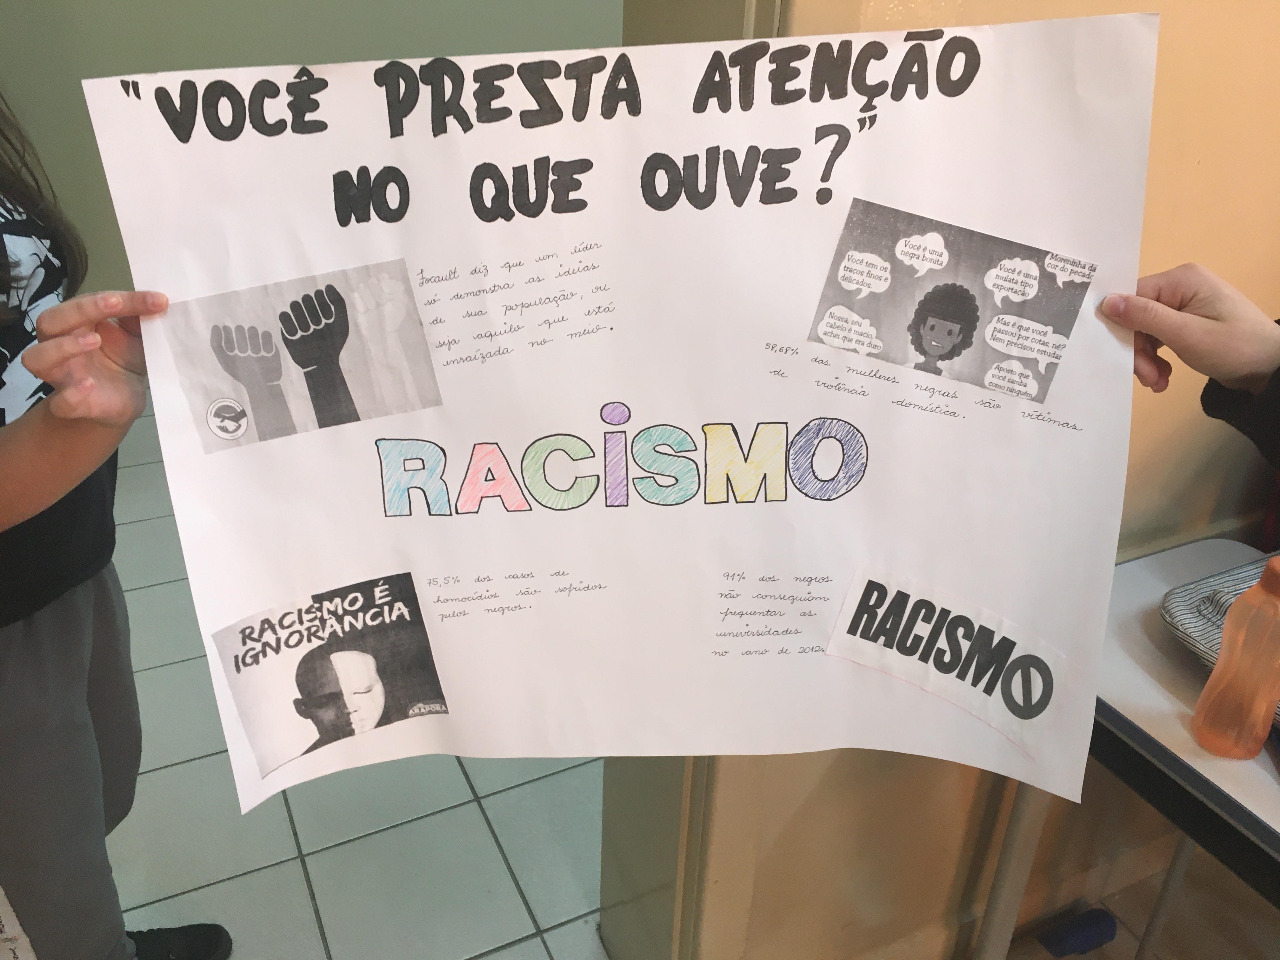 "VOCÊ PRESTA ATENÇÃO
NO QUE OUVE?"
Focault diz que um líder
só demonstra as ideias
de sua população, ou
seja aquilo que está
enraizada no meio.
Você é uma
negra bonita
Você tem os
traços finos e
delicados.
Nossa, seu
cabelo é macio,
achei que era duro
Moreninha da
cor do pecado
Você é uma
mulata tipo
exportação
Mas é que você
passou por cotas, né?
Nem precisou estudar
Aposto que
você samba
como ninguém
58,68% das mulheres negras são vítimas
de violência doméstica.
RACiSMO
RACISMO É
IGNORÂNCIA
ARAPORA
75,5% dos casos de
homocídios são sofridos
pelos negros.
91% dos negros
não conseguiam
frequentar as
universidades
no ano de 2012.
RACISMO